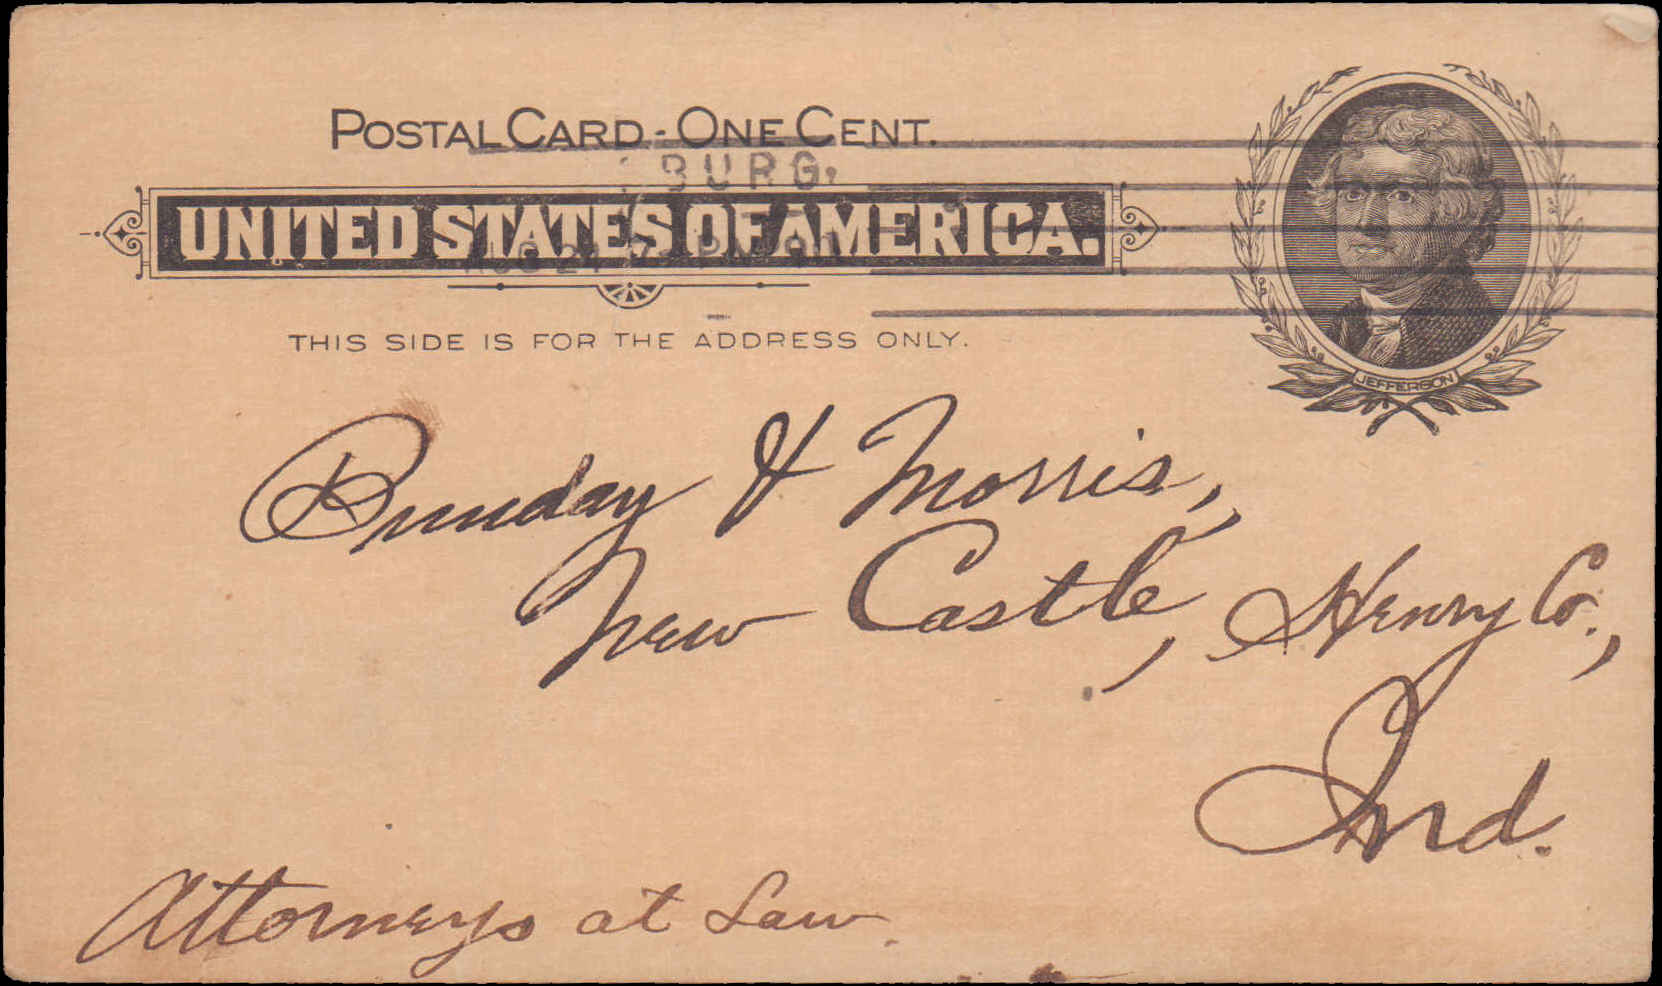 POSTAL CARD - ONE CENT.
BURG,
UNITED STATES OF AMERICA.
AUG 21 7 PM
THIS SIDE IS FOR THE ADDRESS ONLY.
JEFFERSON
Bunday & Morris,
New Castle, Henry Co.,
Ind.
Attorneys at Law.